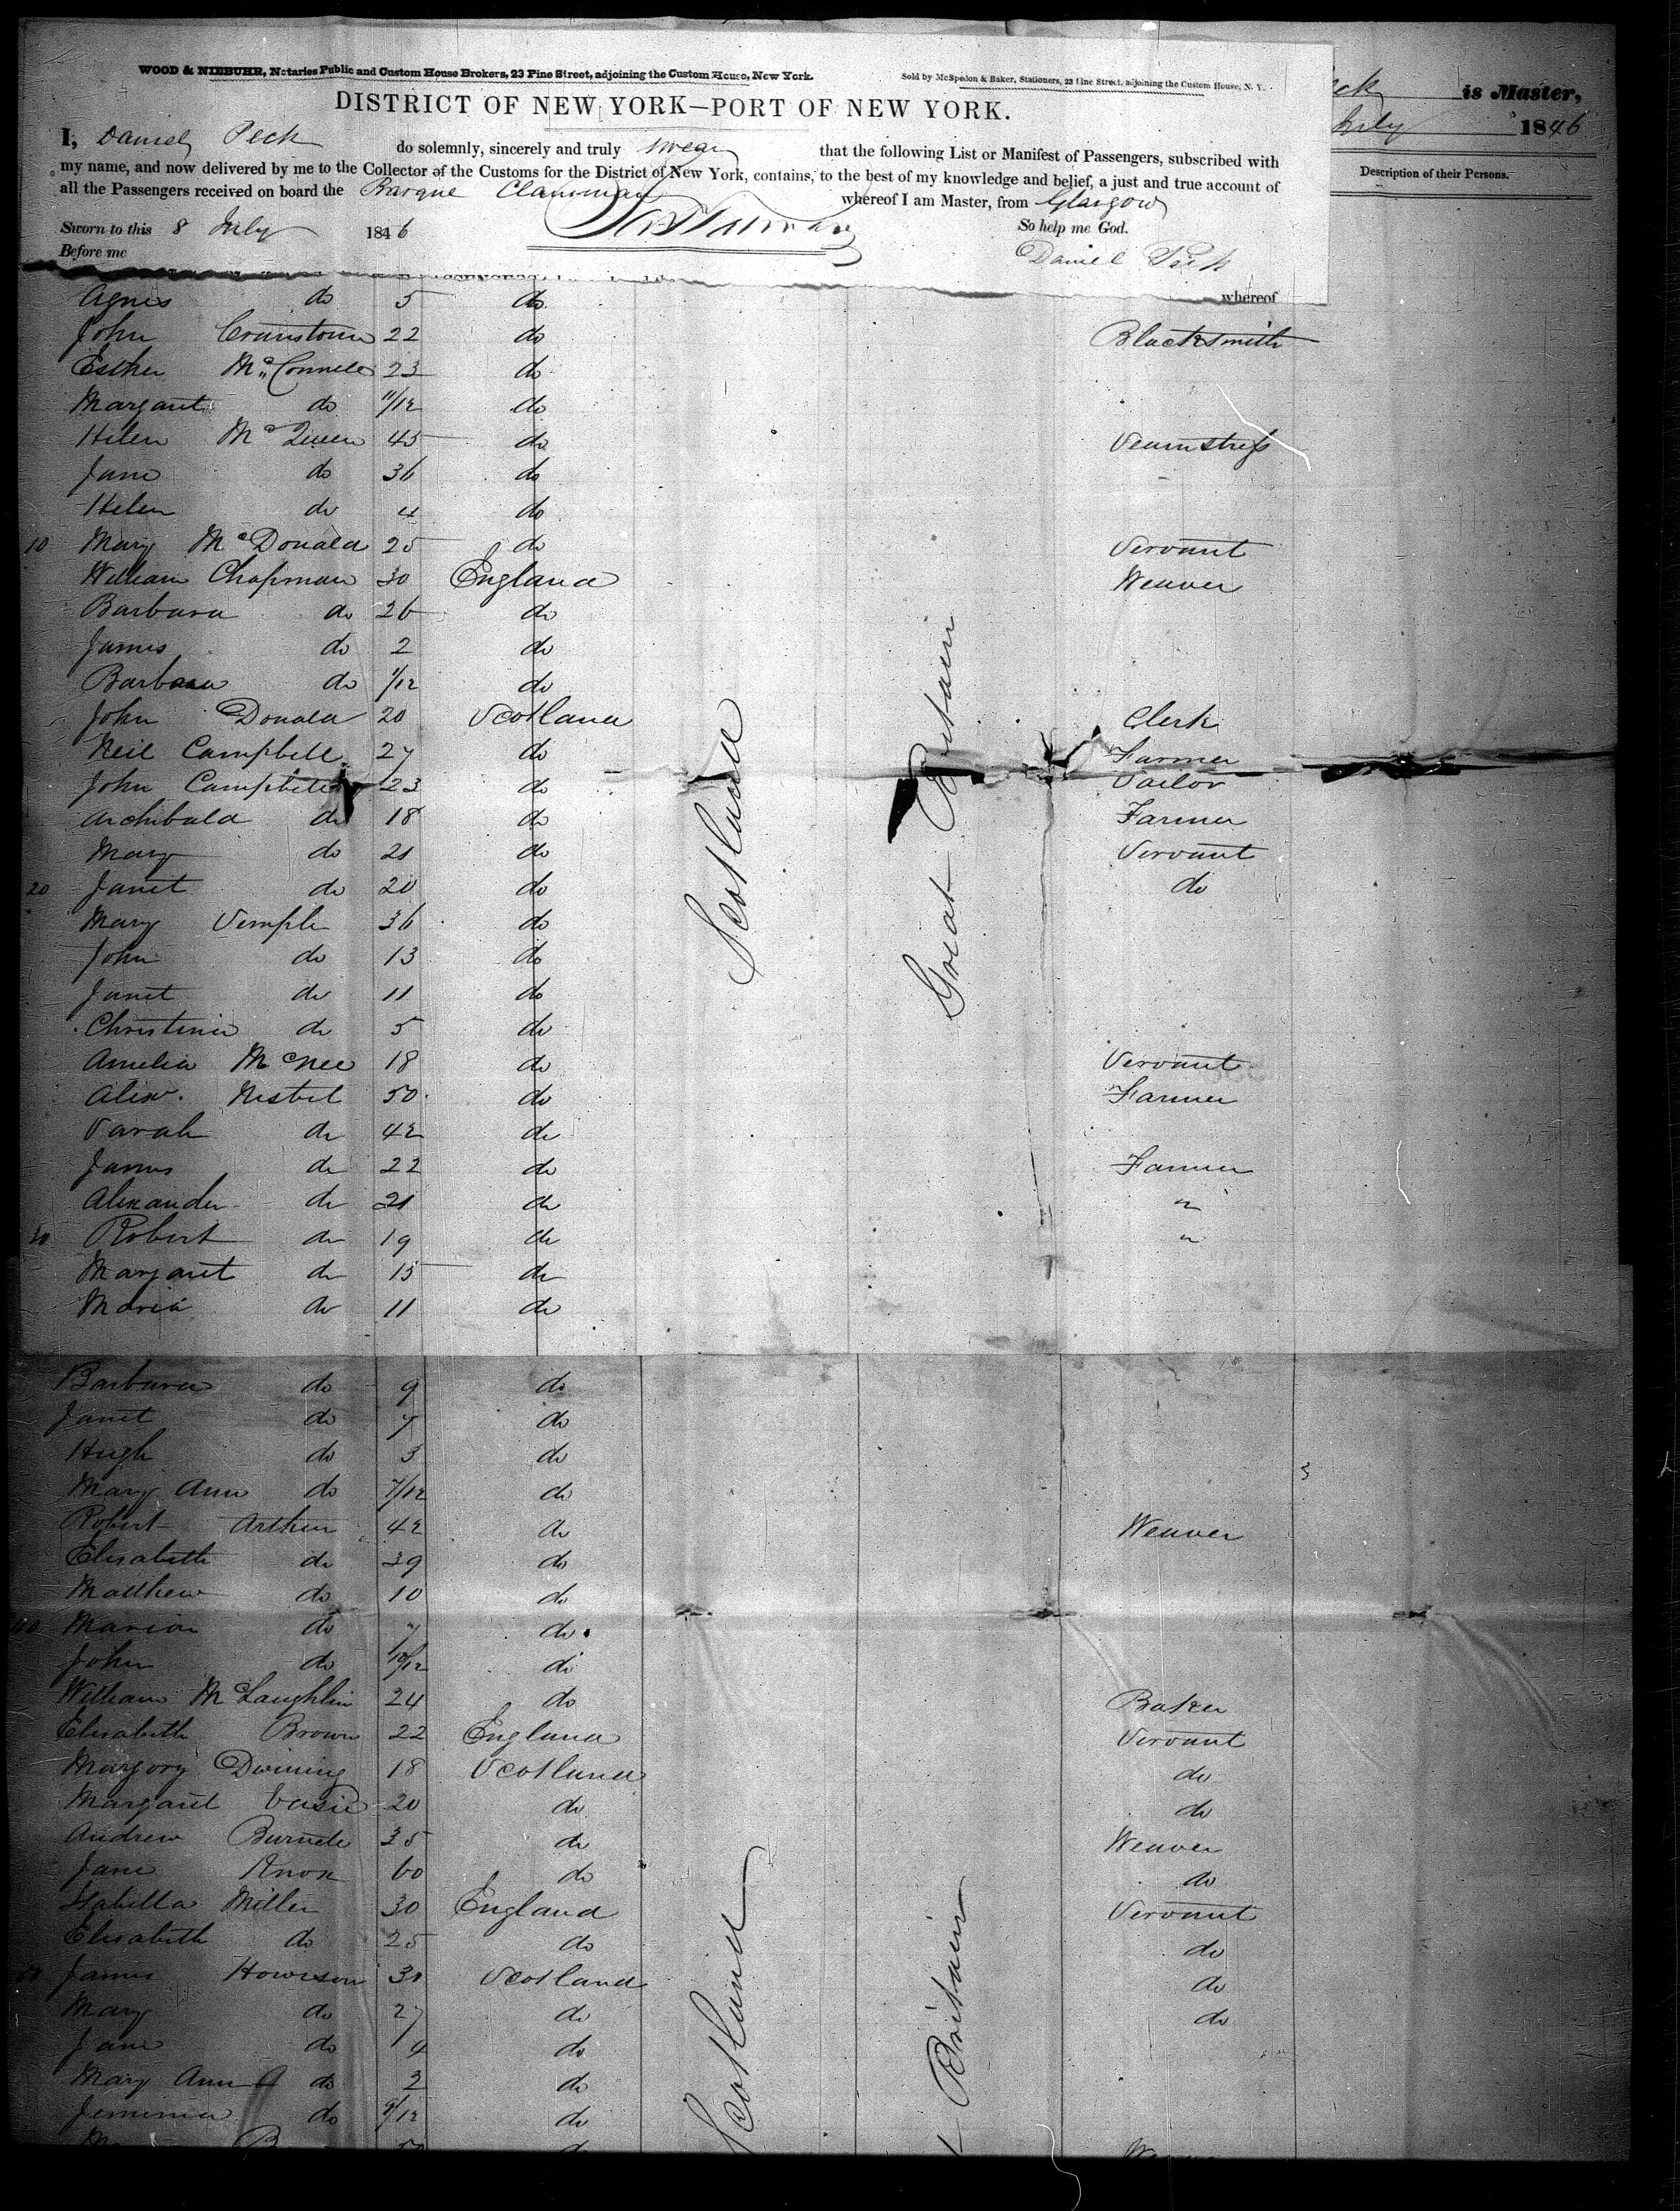 WOOD & NIEBUHR, Notaries Public and Custom House Brokers, 23 Pine Street, adjoining the Custom House, New York.
Sold by McSpedon & Baker, Stationers, 23 Pine Street, adjoining the Custom House, N. Y.
DISTRICT OF NEW YORK—PORT OF NEW YORK.
is Master,
July 1846
Description of their Persons.
I, Daniel Peck do solemnly, sincerely and truly swear that the following List or Manifest of Passengers, subscribed with
my name, and now delivered by me to the Collector of the Customs for the District of New York, contains, to the best of my knowledge and belief, a just and true account of
all the Passengers received on board the Barque Clansman whereof I am Master, from Glasgow
Sworn to this 8 July 1846 So help me God.
Before me Daniel Peck
whereof
Agnes do 5 do
John Cranstoun 22 do Blacksmith
Esther McConnell 23 do
Margaret do 11/12 do
Helen McQueen 45 do Seamstress
Jane do 36 do
Helen do 4 do
10 Mary McDonald 25 do Servant
William Chapman 30 England Weaver
Barbara do 26 do
James do 2 do
Barbara do 1/12 do
John Donald 20 Scotland Clerk
Neil Campbell 27 do Farmer
John Campbell 23 do Sailor
Archibald do 18 do Farmer
Mary do 21 do Servant
20 Janet do 20 do do
Mary Semple 36 do
John do 13 do
Janet do 11 do
Christina do 5 do
Amelia McNee 18 do Servant
Alexr. Nisbet 50 do Farmer
Sarah do 42 do
James do 22 do Farmer
Alexander do 21 do "
30 Robert do 19 do "
Margaret do 15 do
Maria do 11 do
Scotland
Great Britain
Barbara do 9 do
Janet do 7 do
Hugh do 3 do
Mary Ann do 7/12 do
Robert Arthur 42 do Weaver
Elisabeth do 39 do
Matthew do 10 do
40 Marion do 7 do
John do 10/12 do
William McLaughlin 24 do Baker
Elisabeth Brown 22 England Servant
Margory Dwining 18 Scotland do
Margaret 20 do do
Andrew 35 do Weaver
Jane Knox 60 do do
Isabella Miller 30 England Servant
Elisabeth do 25 do do
50 James Howieson 30 Scotland do
Mary do 27 do do
Jane do 4 do
Mary Ann do 2 do
Jemima do 9/12 do
Scotland
Britain